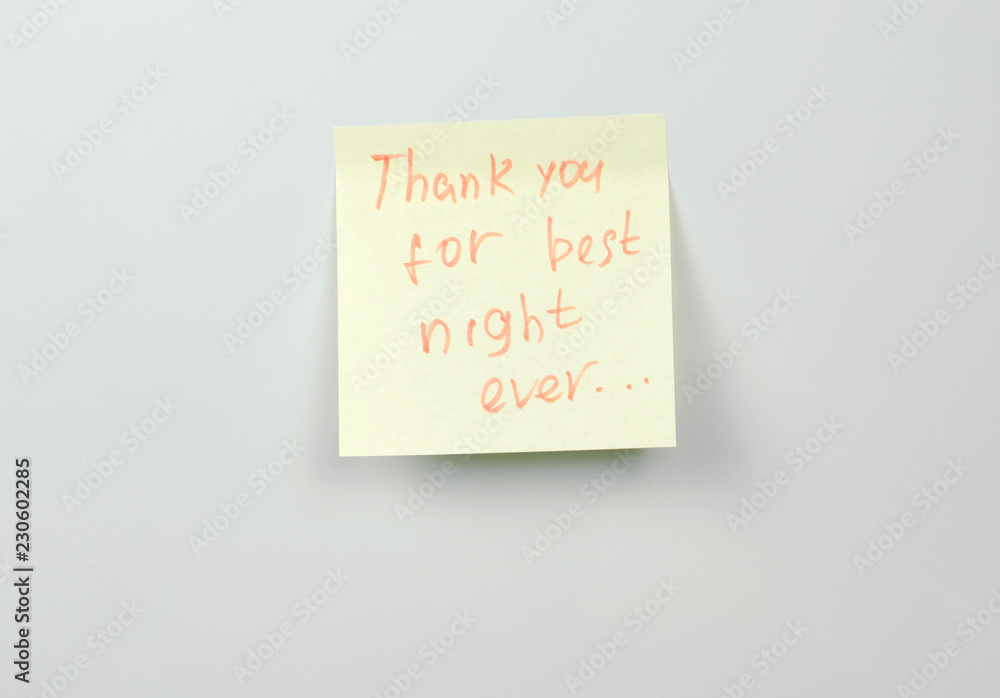 Thank you
for best
night
ever...
Adobe Stock | #230602285
Adobe Stock